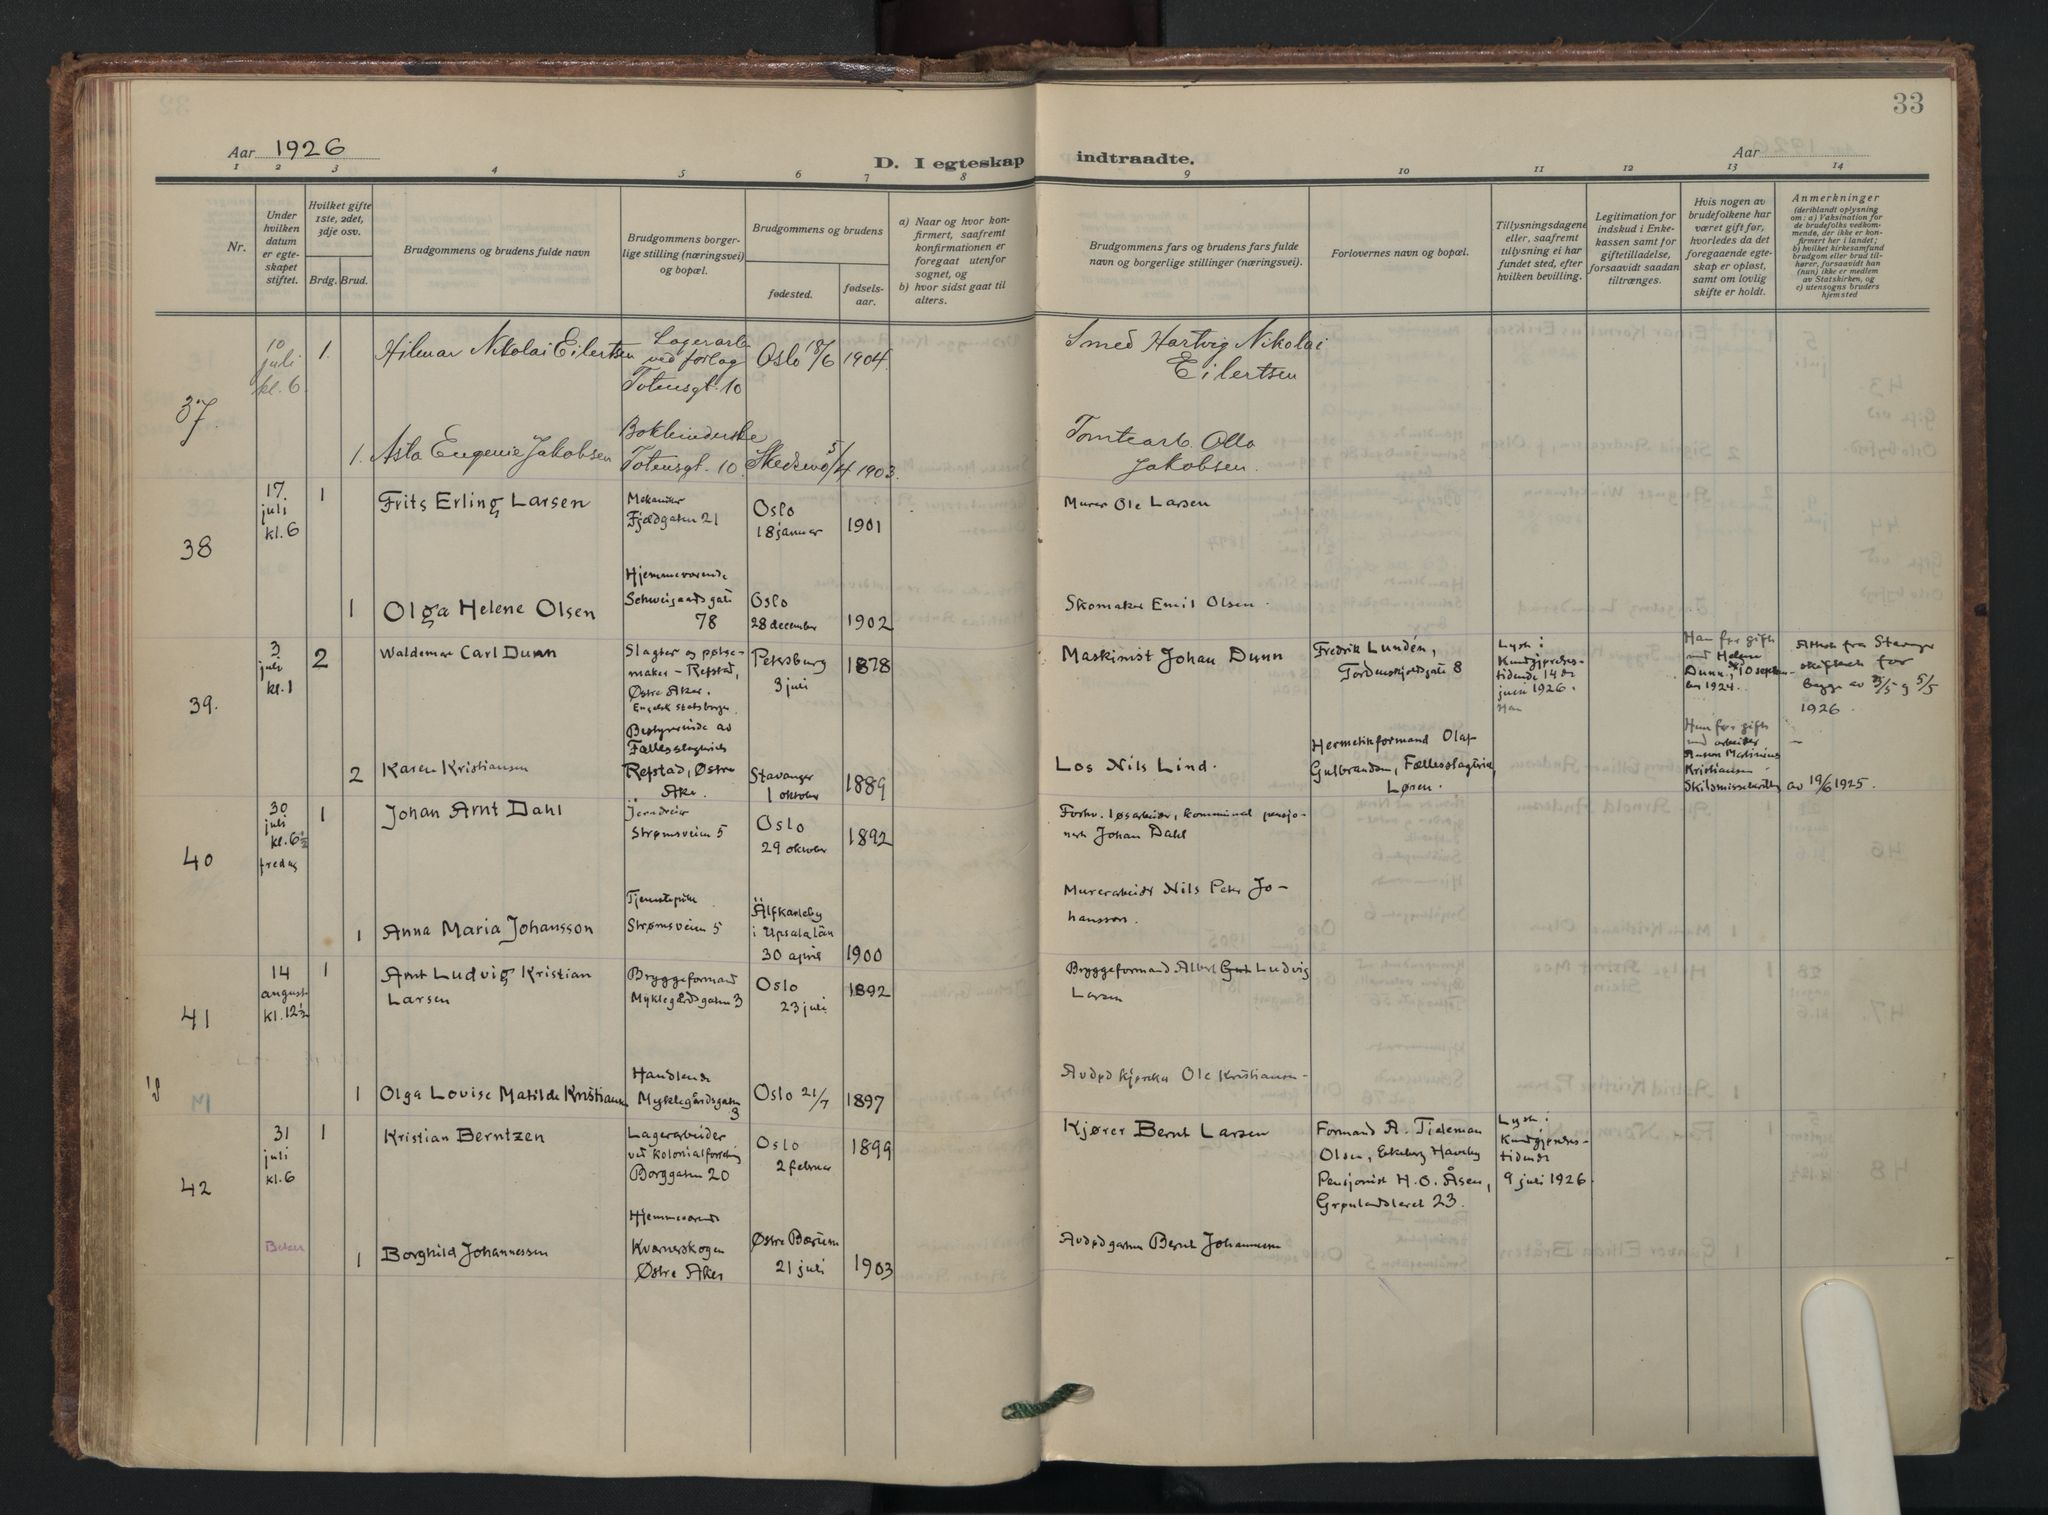 33
Aar 1926
D. I egteskap indtraadte.
Aar
1 2 3 4 5 6 7 8 9 10 11 12 13 14
Nr.
Under hvilken datum er egteskapet stiftet.
Hvilket gifte 1ste, 2det, 3dje osv.
Brdg. Brud.
Brudgommens og brudens fulde navn
Brudgommens borgerlige stilling (næringsvei) og bopæl.
Brudgommens og brudens
fødested.
fødselsaar.
a) Naar og hvor konfirmert, saafremt konfirmationen er foregaaet utenfor sognet, og
b) hvor sidst gaat til alters.
Brudgommens fars og brudens fars fulde navn og borgerlige stillinger (næringsvei).
Forlovernes navn og bopæl.
Tillysningsdagene eller, saafremt tillysning ei har fundet sted, efter hvilken bevilling.
Legitimation for indskud i Enkekassen samt for giftetilladelse, forsaavidt saadan tiltrænges.
Hvis nogen av brudefolkene har været gift før, hvorledes da det foregaaende egteskap er opløst, samt om lovlig skifte er holdt.
Anmerkninger
(deriblandt oplysning om: a) Vaksination for de brudefolks vedkommende, der ikke er konfirmert her i landet; b) hvilket kirkesamfund brudgom eller brud tilhører, forsaavidt han (hun) ikke er medlem av Statskirken, og c) utensogns bruders hjemsted
37
10 juli kl. 6.
1.
Hilmar Nikolai Eilertsen
Lagerarb. ved forlag
Totensgt. 10
Oslo 18/6 1904.
Smed Hartvig Nikolai
Eilertsen
1. Asta Eugenie Jakobsen
Bokbinderske
Totensgt. 10.
Skedsmo 5/4 1903.
Tomtearb. Otto
Jakobsen.
38
17. juli kl. 6
1
Frits Erling Larsen
Mekaniker
Fjeldgaten 21
Oslo
18 januar
1901
Murer Ole Larsen
1 Olga Helene Olsen
Hjemmeværende
Schweigaardsgate
78
Oslo
28 december
1902
Skomaker Emil Olsen.
39.
3 juli kl. 1
2
Waldemar Carl Dunn
Slagter og pølsemaker - Refstad,
Østre Aker.
Engelsk statsborger
Petersburg
3 juli
1878
Maskinist Johan Dunn
Fredrik Lundén,
Tordenskjoldsgate 8
Lyst i
Kundgjørelsestidende 14de
juni 1926.
Han før gift
med Helene
Dunn, 10 september 1924.
Attest fra Stavanger
skifteret for
begge av 3/5 og 5/5
1926.
2 Karen Kristiansen
Bestyrerinde av
Fællesslagteriets
Refstad, Østre
Aker
Stavanger
1 oktober
1889
Los Nils Lind.
Hermetikformand Olaf
Gulbrandsen, Fællesslagteriet,
Løren.
Hun før gift
med arbeider
Anton Martinius
Kristiansen
Skilsmissebevilling av 19/6 1925.
40
30 juli kl. 6½ fredag
1
Johan Arnt Dahl
Jerndreier
Strømsveien 5
Oslo
29 oktober
1892
Forhv. løsarbeider, kommunal pensjonist Johan Dahl
1 Anna Maria Johansson
Tjenestepike
Strømsveien 5
Älfkarleby
i Upsala län
30 april
1900
Murerarbeider Nils Peter Johansson.
41
14 august kl. 12½
1
Arnt Ludvig Kristian
Larsen
Bryggeformand
Myklegårdsgaten 3
Oslo
23 juli
1892
Bryggeformand Albert Ludvig
Larsen
1 Olga Lovise Matilde Kristiansen
Handlende
Myklegårdsgaten
3
Oslo 21/7 1897
Avdød kjørekar Ole Kristiansen
42
31 juli kl. 6
1
Kristian Berntzen
Lagerarbeider
ved kolonialforretning
Borggaten 20
Oslo
2 februar
1899
Kjører Bernt Larsen
Formand A. Tideman
Olsen, Ekeberg Haveby
Pensjonist H. O. Åsen,
Grønlandsleret 23.
Lyst i
Kundgjørelsestidende
9 juli 1926
1 Borghild Johannessen
Hjemmeværende
Kværnerskogen
Østre Aker
Østre Bærum
21 juli
1903
Avdød gartner Bernt Johannessen